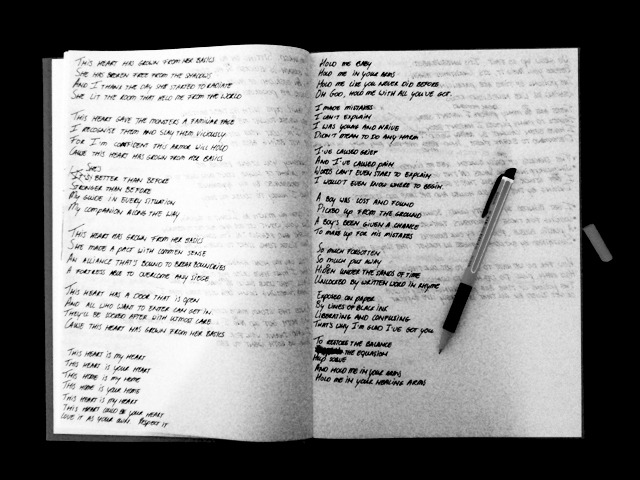 This heart has grown from her basics
She has broken free from the shadows
And I thank the day she started to radiate
She lit the room that held me from the world
This heart gave the monsters a familiar face
I recognise them and slay them viciously
For I'm confident this armor will hold
Cause this heart has grown from her basics
She's
(It's) better than before
Stronger than before
My guide in every situation
My companion along the way
This heart has grown from her basics
She made a pact with common sense
An alliance that's bound to break boundries
A fortress able to overcome any siege
This heart has a door that is open
And all who want to enter can get in.
They'll be looked after with utmost care
Cause this heart has grown from her basics
This heart is my heart
This heart is your heart
This home is my home
This home is your home
This heart is my heart
This heart could be your heart
Love it as your own Respect it
Hold me baby
Hold me in your arms
Hold me like you never did before
Oh God, hold me with all you've got.
I made mistakes
I can't explain
I was young and naïve
Didn't mean to do any harm
I've caused grief
And I've caused pain
Words can't even start to explain
I would't even know where to begin.
A boy was lost and found
Picked up from the ground
A boy's been given a chance
To make up for his mistakes
So much forgotten
So much put away
Hiden under the sands of time
Unlocked by written word in rhyme
Exposed on paper
By lines of black ink
Liberating and confusing
That's why I'm glad I've got you
To restore the balance
the equasion
Help solve
And hold me in your arms
Hold me in your healing arms